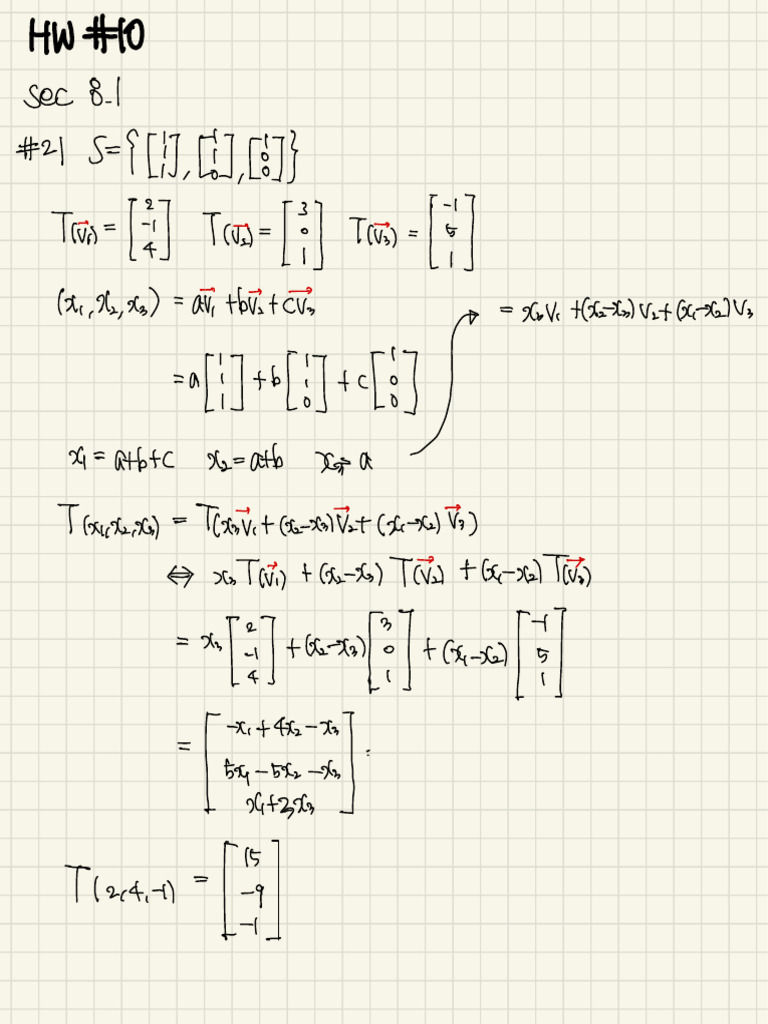 HW #10
sec 8.1
#21 S={[1 1 1], [1 1 0], [1 0 0]}
T(v₁) = [2 -1 4] T(v₂) = [3 0 1] T(v₃) = [-1 5 1]
(x₁, x₂, x₃) = av₁ + bv₂ + cv₃
= x₃v₁ + (x₂-x₃)v₂ + (x₁-x₂)v₃
= a[1 1 1] + b[1 1 0] + c[1 0 0]
x₁ = a+b+c x₂ = a+b x₃ = a
T(x₁,x₂,x₃) = T(x₃v₁ + (x₂-x₃)v₂ + (x₁-x₂)v₃)
⇔ x₃T(v₁) + (x₂-x₃)T(v₂) + (x₁-x₂)T(v₃)
= x₃[2 -1 4] + (x₂-x₃)[3 0 1] + (x₁-x₂)[-1 5 1]
= [-x₁+4x₂-x₃
5x₁-5x₂-x₃
x₁+3x₃].
T(2,4,-1) = [15 -9 -1]